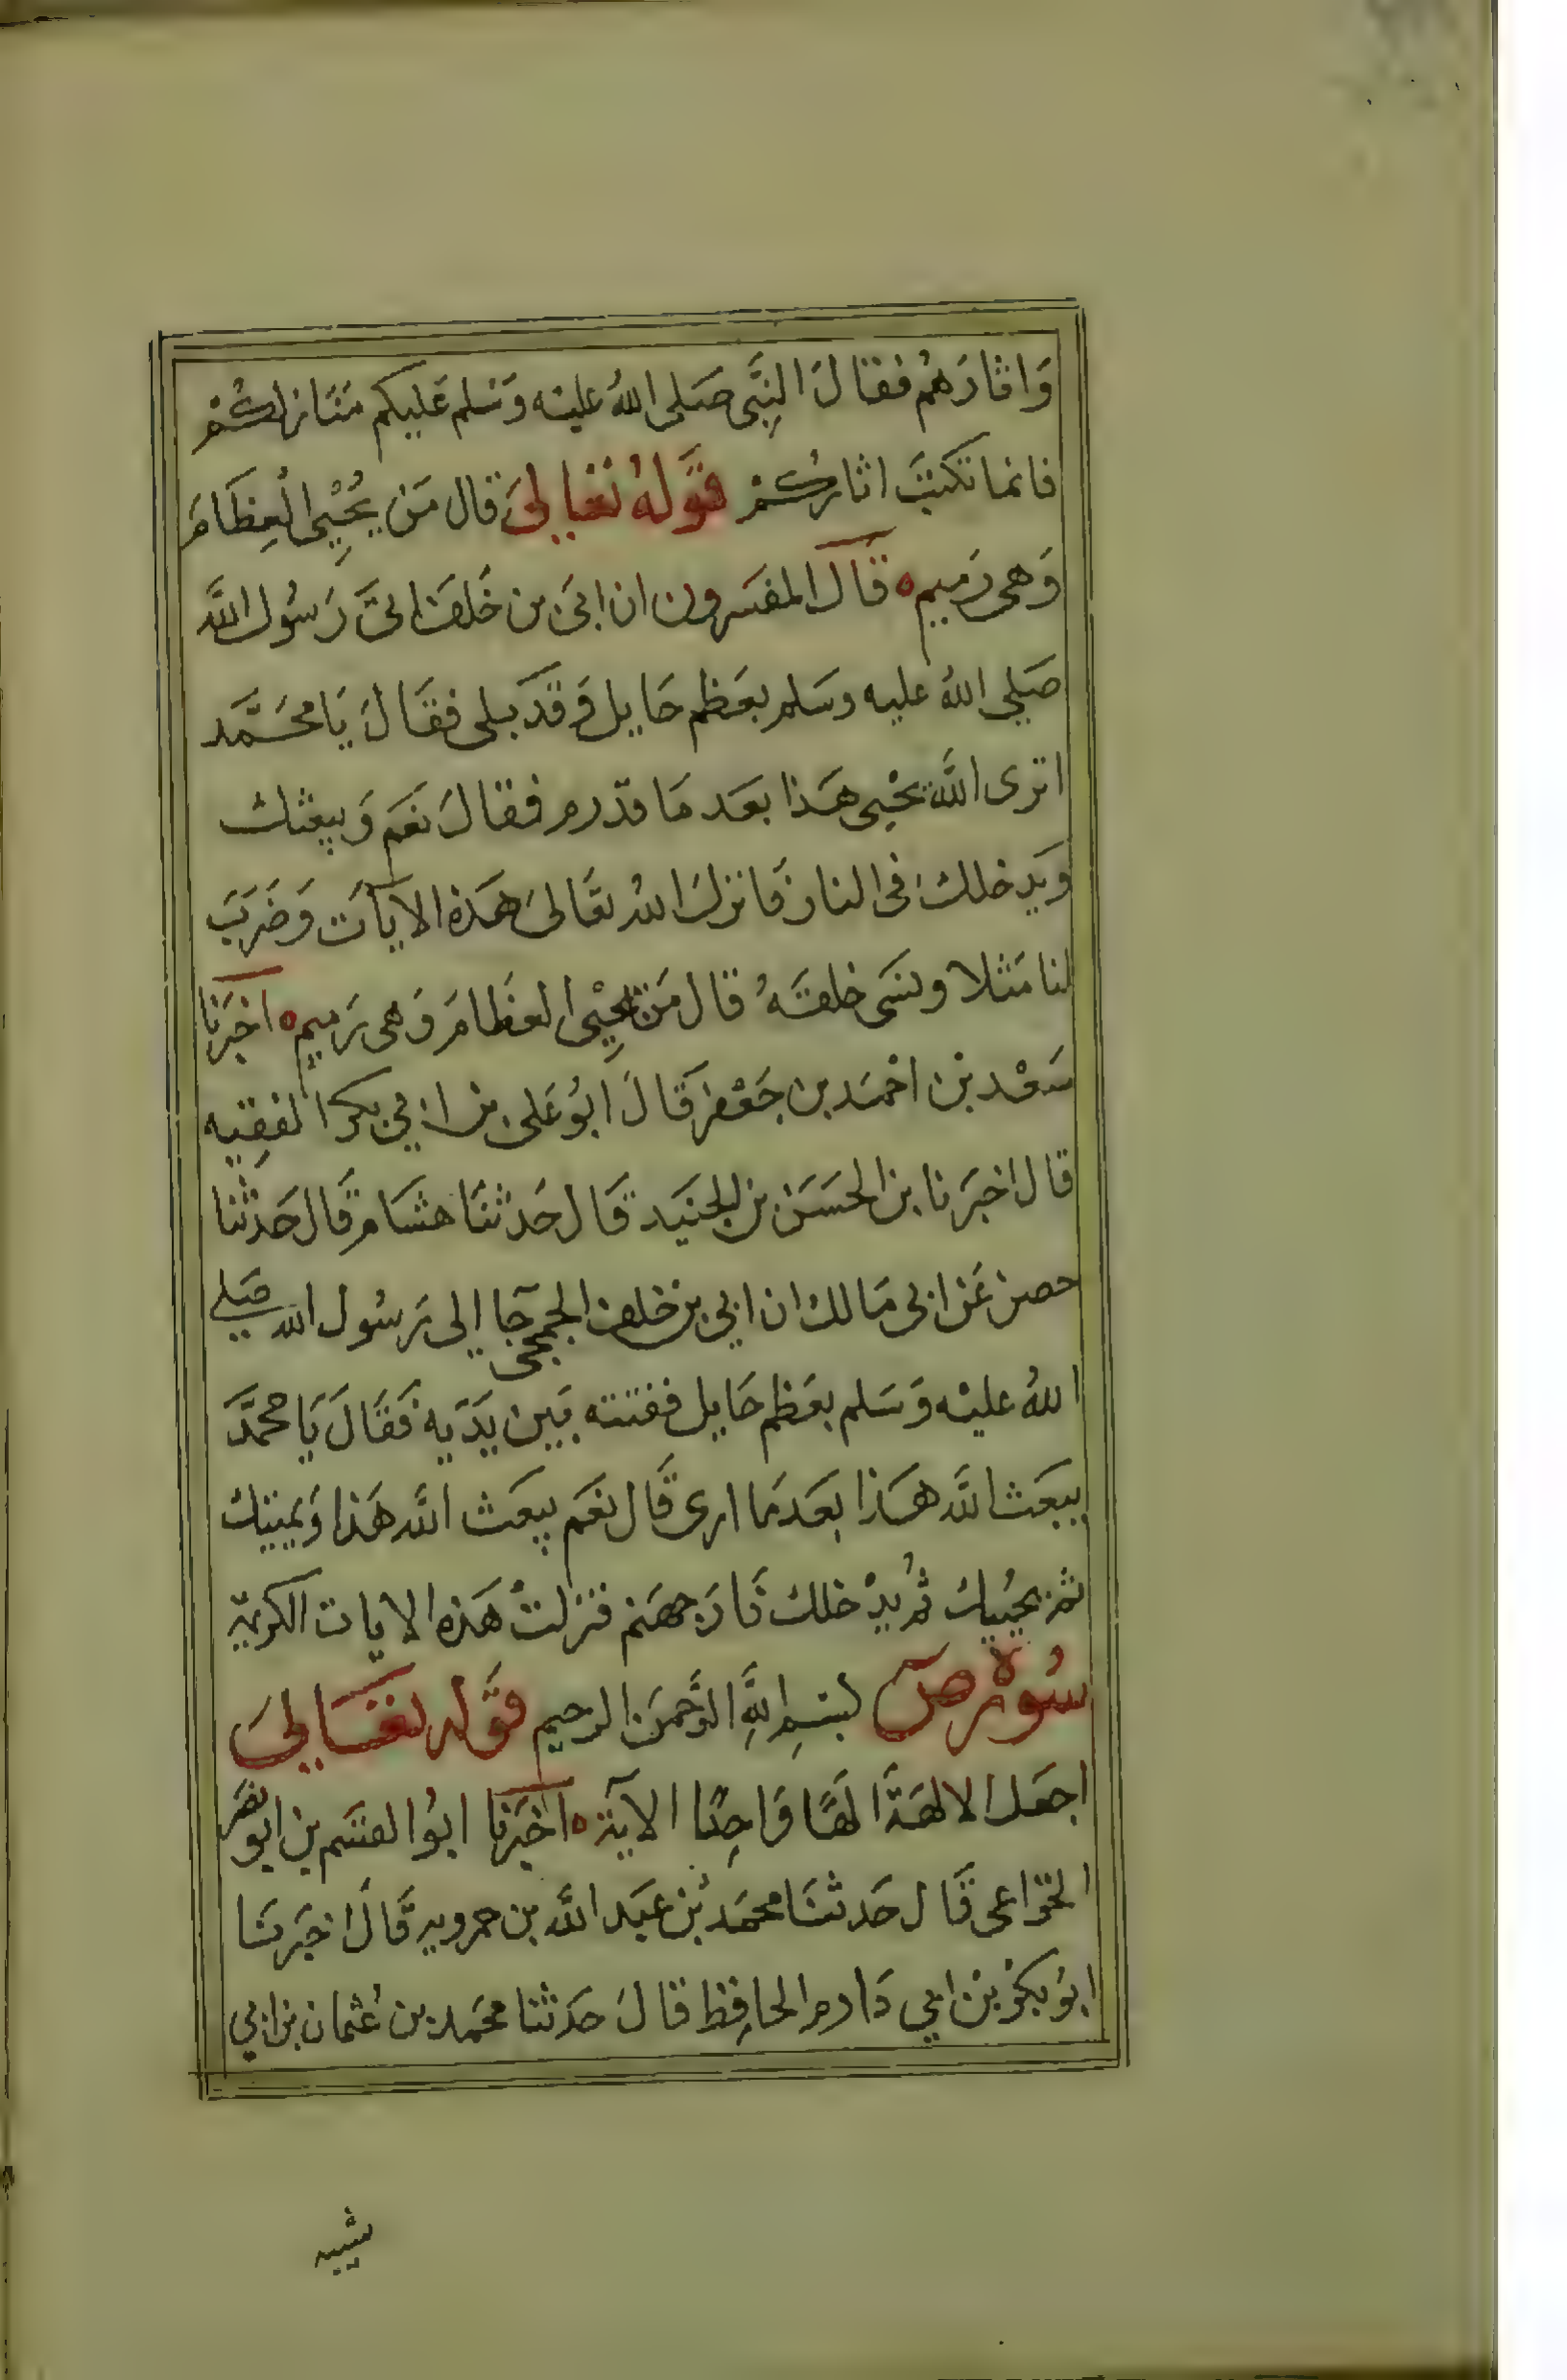 وَاثارَهُم فقالَ النبِّى صَلى اللهُ عليْه وَسَلم عَليكم مَنَازلكُمْ
فانما تكتبَ اثاركُمْ قَوْلهُ تعَالىَ قال مَن يُحْيِى العِظَامَ
وَهى رَميم ه قالَ المفسرون ان ابىَ بن خَلف اتىَ رَسُول اللَّه
صَلى اللهُ عليه وسَلم بعَظم حَايل وَقدَ بلى فقَالَ يَا محَمَّد
اترى اللَّه يحْيى هَذا بعَد مَا قدْ رم فقالَ نعَم وَيبعثك
وَيدخلكَ فى النار فَانزلَ اللهُ تعَالىَ هَذه الايآت وَضَربَ
لنا مَثلا ونسَى خلقَهُ قال مَن يحْيِى العظَامَ وَهى رَميم ه اخبَرنا
سَعْد بن احمَد بن جَعْفر قَالَ ابوُ عَلى بن ابى بكر الفقِيه
قال اخبَرنا بن الحسَن بن الجنيَد قَال حَدثنَا هشَام قَال حَدثنا
حصن عَن ابى مَالك ان ابى بن خلف الجمحى جَآ إلى رَسُول الله صَلى
اللهُ عليْه وَسَلم بعَظم حَايل ففتته بَين يدَيه فقَالَ يَا محمَّد
يبعَث اللَّه هَذا بَعَد مَا ارى قَال نعَم يبعَث اللَّه هَذا وَيميتك
ثم يحُييك ثم يُدْخلك نَار جهَنم فنزلتْ هَذه الايات الكريمة
سُورة صَ بسْمِ اللَّهِ الرَّحمنَ الرحيم قَوْله تعَالىَ
اجعَل الالهَةَ الهًا وَاحِدًا الآية ه اخبَرنا ابوُ القسَم بن ابو نصَر
الخزاعى قَال حَدثنَا محمَد بُن عبَد اللَّه بن حمرويه قَالَ اخبَرنا
ابوُ بكرْ بْن ابى دَارم الحافِظ قالَ حدَثنا محَمد بن عُثمان بن ابى
شيبه